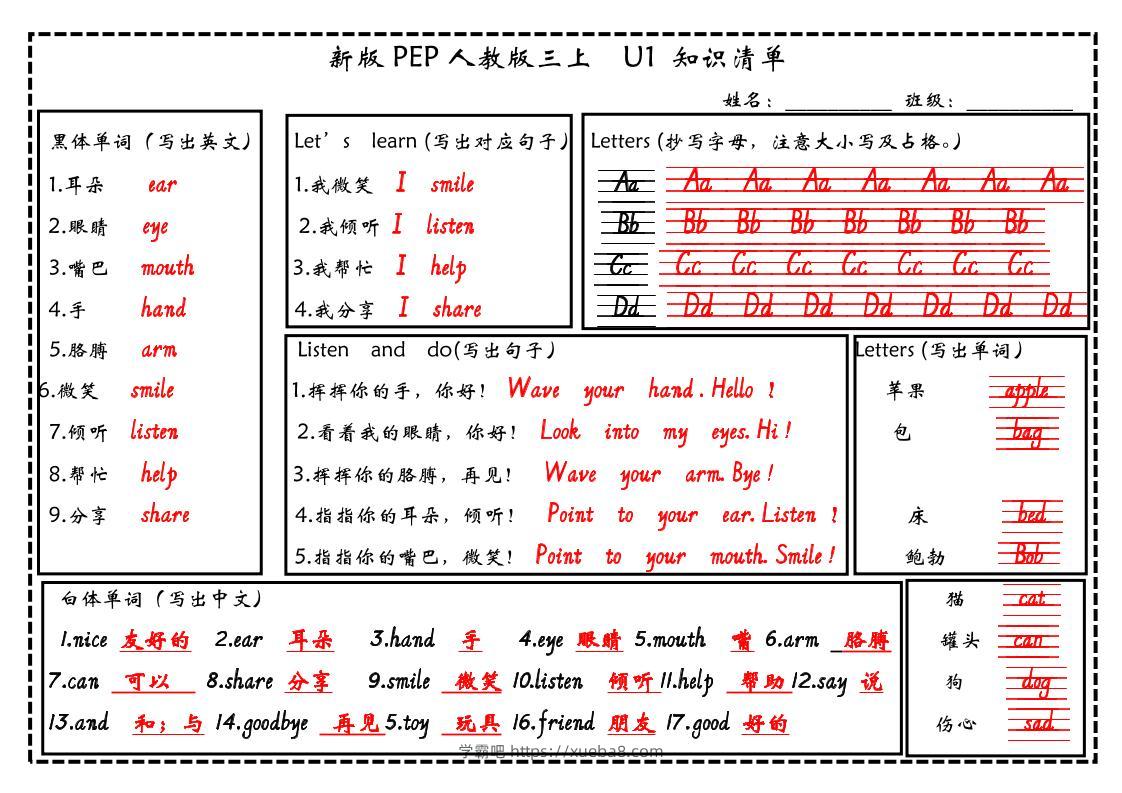 新版 PEP 人教版三上 U1 知识清单
姓名：__________ 班级：__________
黑体单词（写出英文）
1.耳朵 ear
2.眼睛 eye
3.嘴巴 mouth
4.手 hand
5.胳膊 arm
6.微笑 smile
7.倾听 listen
8.帮忙 help
9.分享 share
Let’s learn (写出对应句子)
1.我微笑 I smile
2.我倾听 I listen
3.我帮忙 I help
4.我分享 I share
Letters (抄写字母，注意大小写及占格。)
Aa Aa Aa Aa Aa Aa Aa Aa
Bb Bb Bb Bb Bb Bb Bb Bb
Cc Cc Cc Cc Cc Cc Cc Cc
Dd Dd Dd Dd Dd Dd Dd Dd
Listen and do(写出句子)
1.挥挥你的手，你好！ Wave your hand. Hello !
2.看着我的眼睛，你好！ Look into my eyes. Hi !
3.挥挥你的胳膊，再见！ Wave your arm. Bye !
4.指指你的耳朵，倾听！ Point to your ear. Listen !
5.指指你的嘴巴，微笑！ Point to your mouth. Smile !
Letters (写出单词)
苹果 apple
包 bag
床 bed
鲍勃 Bob
猫 cat
罐头 can
狗 dog
伤心 sad
白体单词（写出中文）
1.nice 友好的 2.ear 耳朵 3.hand 手 4.eye 眼睛 5.mouth 嘴 6.arm _胳膊
7.can 可以 8.share 分享 9.smile 微笑 10.listen 倾听 11.help 帮助 12.say 说
13.and 和；与 14.goodbye 再见 5.toy 玩具 16.friend 朋友 17.good 好的
学霸吧 https://xueba8.com